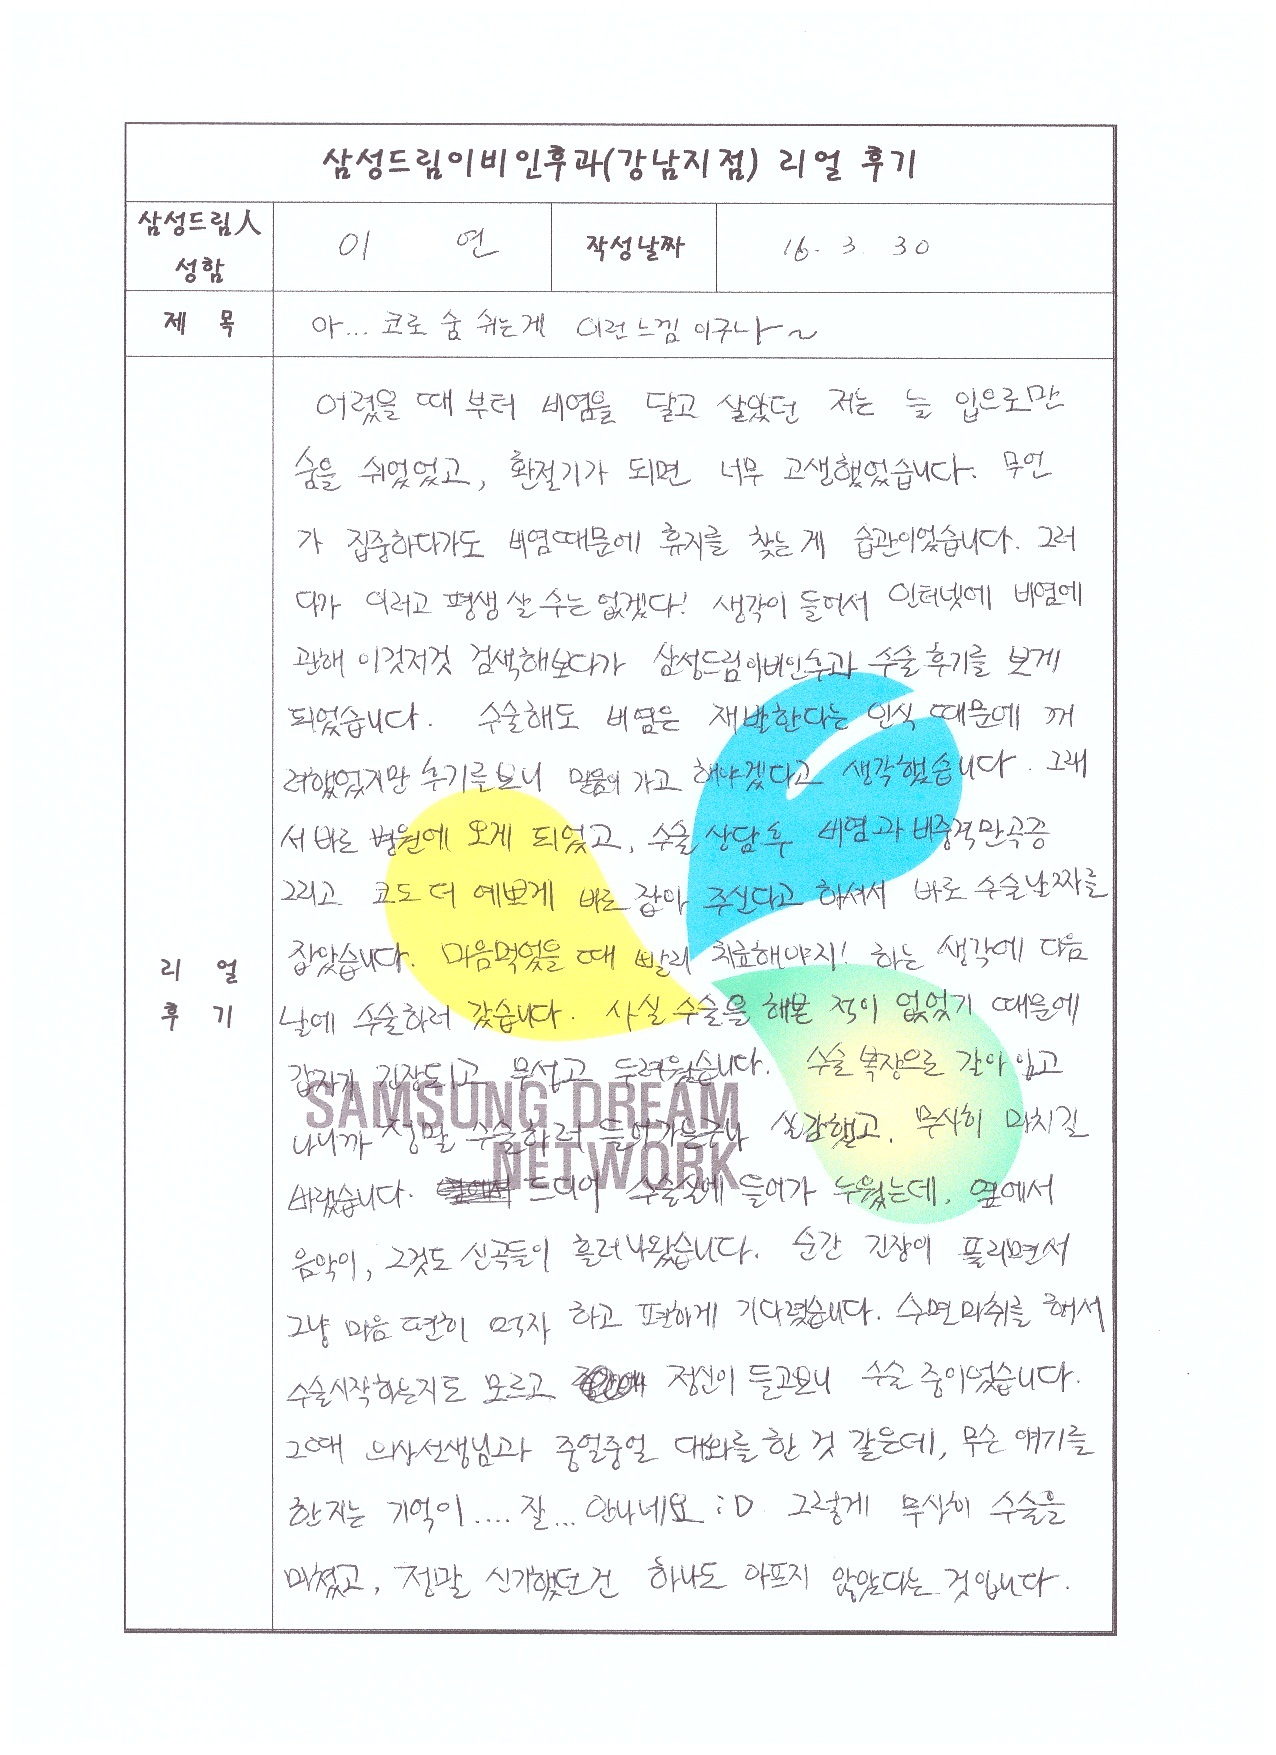 삼성드림이비인후과(강남지점) 리얼 후기
삼성드림人 성함
이 연
작성날짜
16. 3. 30
제 목
아... 코로 숨 쉬는게 이런느낌 이구나~
리 얼
후 기
어렸을 때 부터 비염을 달고 살았던 저는 늘 입으로만
숨을 쉬었었고, 환절기가 되면 너무 고생했었습니다. 무언
가 집중하다가도 비염때문에 휴지를 찾는게 습관이었습니다. 그러
다가 이러고 평생 살 수는 없겠다! 생각이 들어서 인터넷에 비염에
관해 이것저것 검색해보다가 삼성드림이비인후과 수술 후기를 보게
되었습니다. 수술해도 비염은 재발한다는 인식 때문에 꺼
려했었지만 후기를보니 믿음이 가고 해야겠다고 생각했습니다. 그래
서 바로 병원에 오게 되었고, 수술 상담 후 비염과 비중격만곡증
그리고 코도 더 예쁘게 바로 잡아 주신다고 하셔서 바로 수술날짜를
잡았습니다. 마음먹었을 때 빨리 치료해야지! 하는 생각에 다음
날에 수술하러 갔습니다. 사실 수술을 해본 적이 없었기 때문에
갑자기 긴장되고 무섭고 두려웠습니다. 수술 복장으로 갈아입고
나니까 정말 수술하러 들어가는구나 실감했고, 무사히 마치길
바랬습니다. 드디어 수술실에 들어가 누웠는데, 옆에서
음악이, 그것도 신곡들이 흘러나왔습니다. 순간 긴장이 풀리면서
그냥 마음 편히 먹자 하고 편하게 기다렸습니다. 수면마취를 해서
수술시작하는지도 모르고 정신이 들고보니 수술 중이었습니다.
그때 의사선생님과 중얼중얼 대화를 한 것 같은데, 무슨 얘기를
한지는 기억이.... 잘... 안나네요 :D 그렇게 무사히 수술을
마쳤고, 정말 신기했던건 하나도 아프지 않았다는 것입니다.
SAMSUNG DREAM
NETWORK